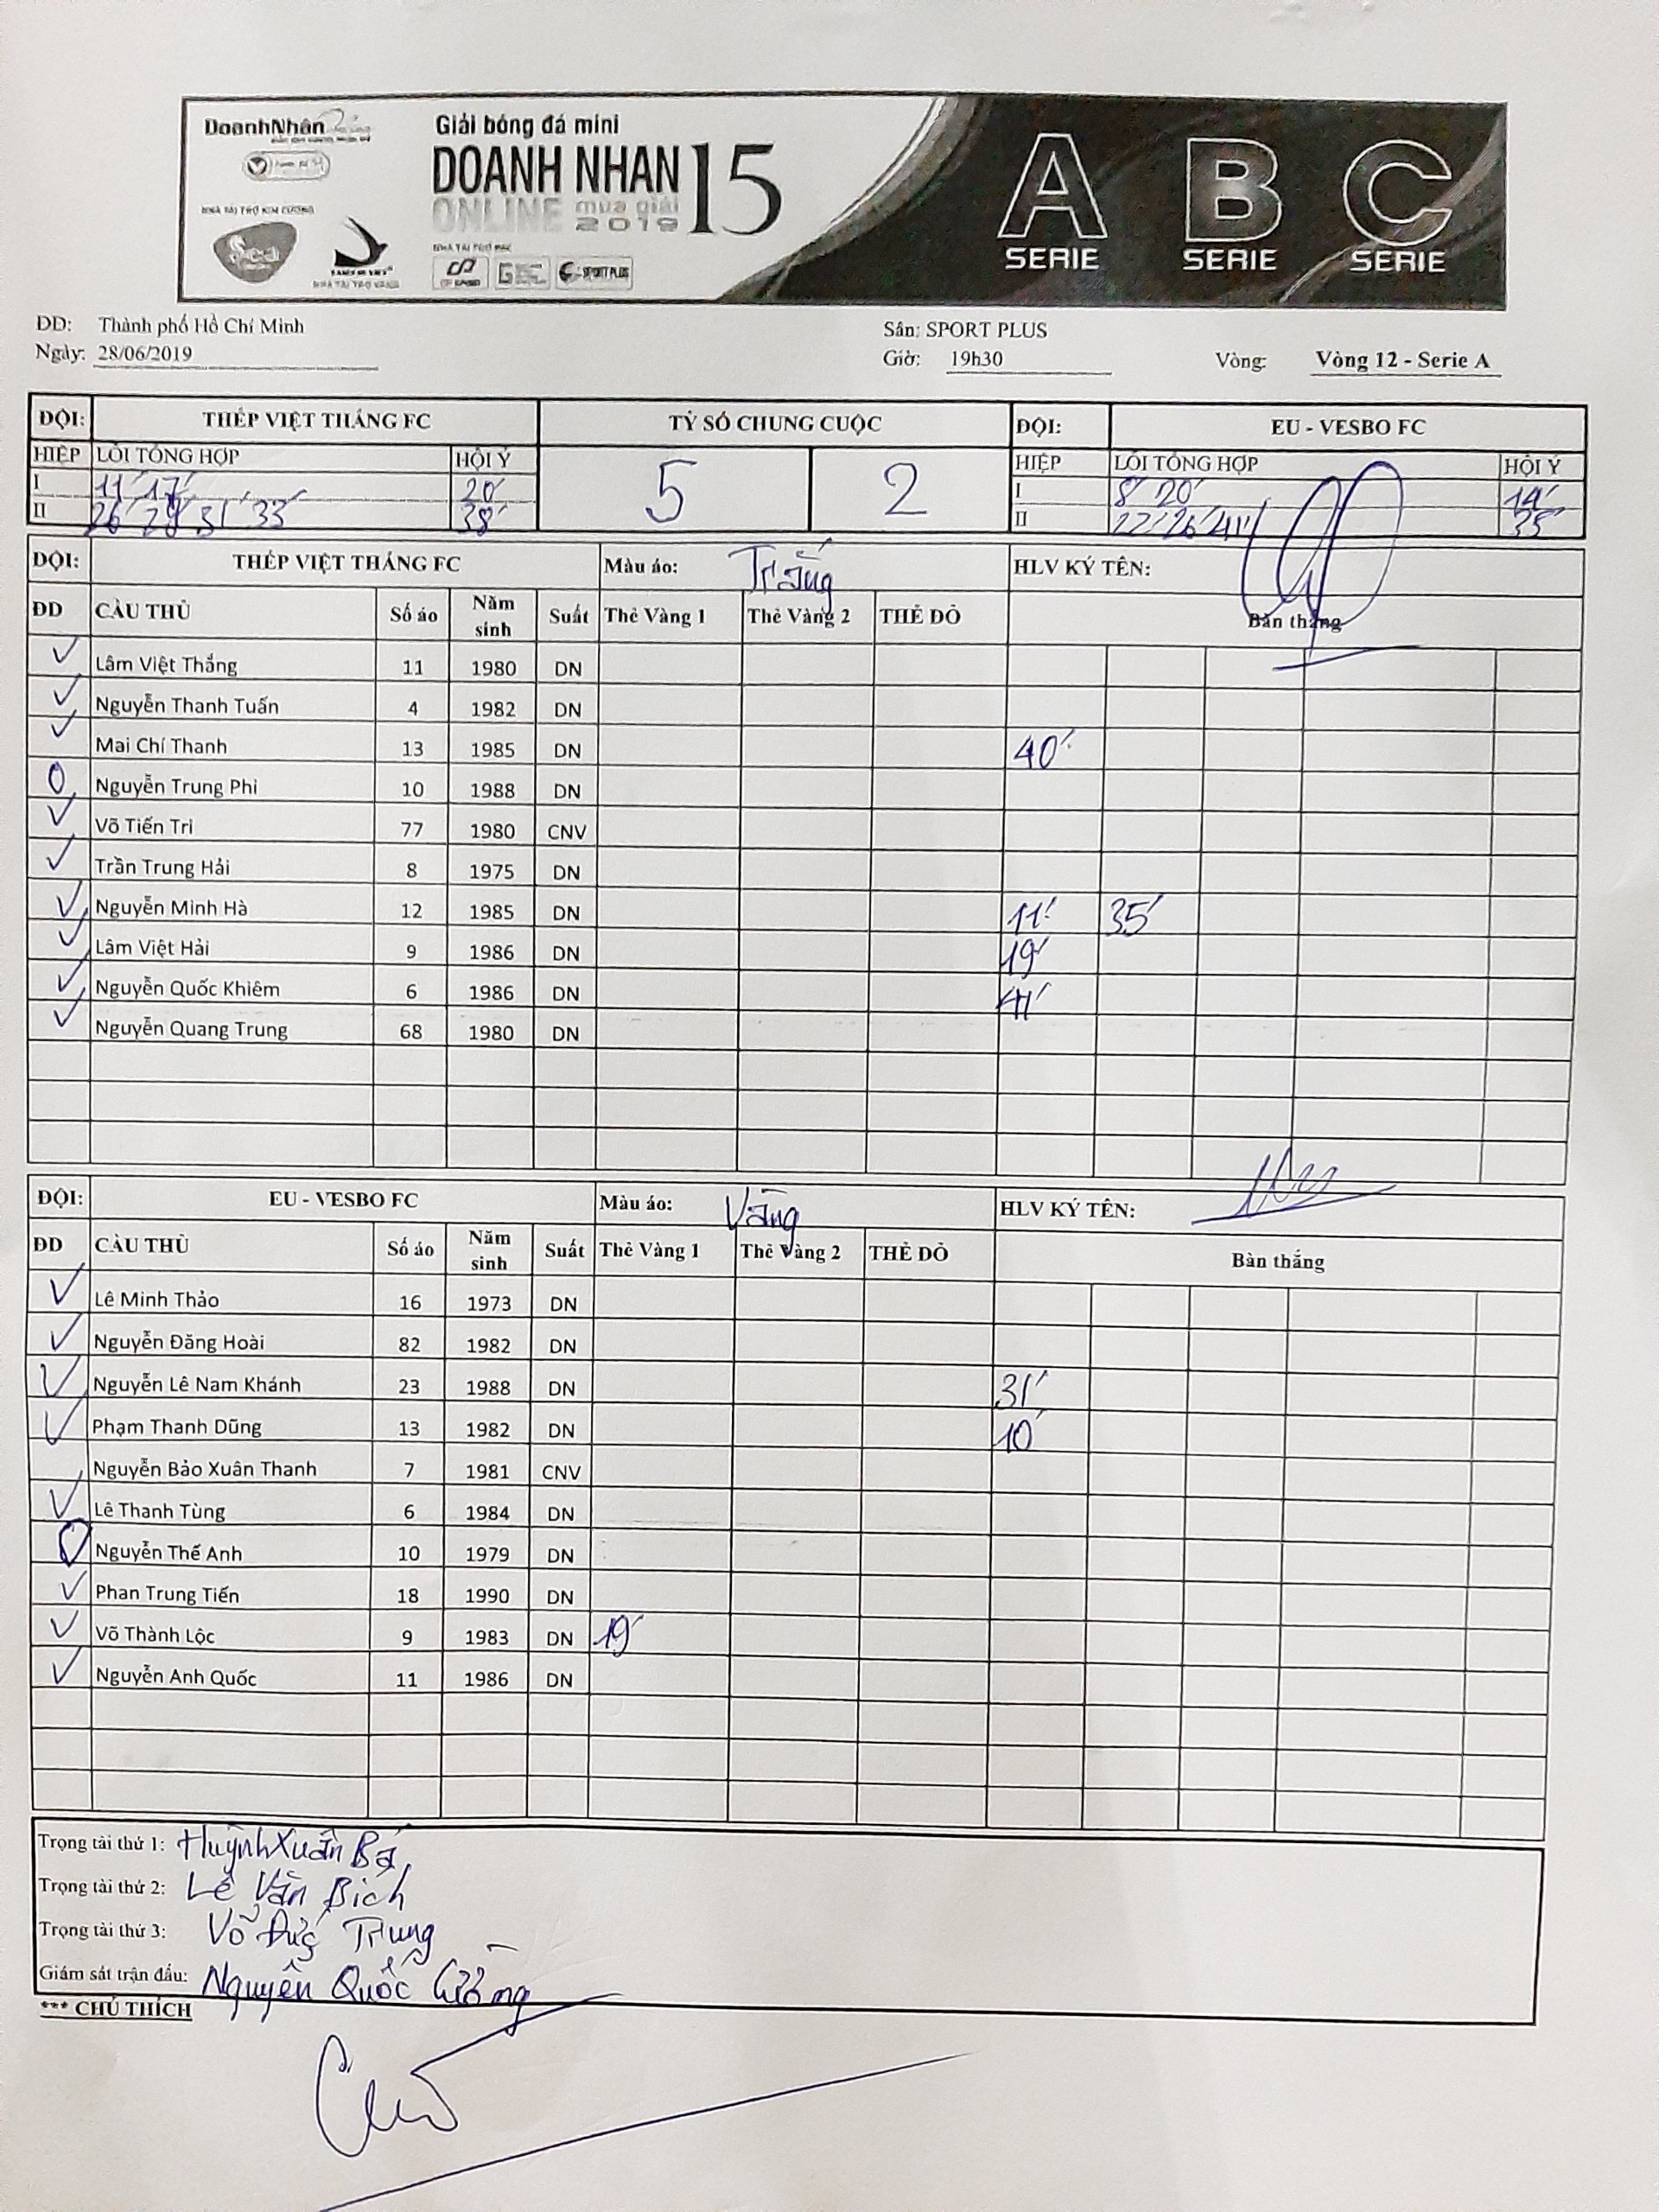 DoanhNhân
Giải bóng đá mini
DOANH NHAN 15
ONLINE mùa giải 2019
NHÀ TÀI TRỢ KIM CƯƠNG
NHÀ TÀI TRỢ VÀNG
SPORT PLUS
A SERIE B SERIE C SERIE
ĐD: Thành phố Hồ Chí Minh Sân: SPORT PLUS
Ngày: 28/06/2019 Giờ: 19h30 Vòng: Vòng 12 - Serie A
ĐỘI: THÉP VIỆT THẮNG FC TỶ SỐ CHUNG CUỘC ĐỘI: EU - VESBO FC
HIỆP LỖI TỔNG HỢP HỘI Ý 5 2 HIỆP LỖI TỔNG HỢP HỘI Ý
I 11' 17' 20' I 8' 20' 14'
II 26' 28' 31' 33' 38' II 22' 26' 41' 35'
ĐỘI: THÉP VIỆT THẮNG FC Màu áo: Trắng HLV KÝ TÊN:
ĐD CẦU THỦ Số áo Năm sinh Suất Thẻ Vàng 1 Thẻ Vàng 2 THẺ ĐỎ Bàn thắng
✓ Lâm Việt Thắng 11 1980 DN
✓ Nguyễn Thanh Tuấn 4 1982 DN
✓ Mai Chí Thanh 13 1985 DN 40'
0 Nguyễn Trung Phi 10 1988 DN
✓ Võ Tiến Tri 77 1980 CNV
✓ Trần Trung Hải 8 1975 DN
✓ Nguyễn Minh Hà 12 1985 DN 11' 35'
✓ Lâm Việt Hải 9 1986 DN 19'
✓ Nguyễn Quốc Khiêm 6 1986 DN 41'
✓ Nguyễn Quang Trung 68 1980 DN
ĐỘI: EU - VESBO FC Màu áo: Vàng HLV KÝ TÊN:
ĐD CẦU THỦ Số áo Năm sinh Suất Thẻ Vàng 1 Thẻ Vàng 2 THẺ ĐỎ Bàn thắng
✓ Lê Minh Thảo 16 1973 DN
✓ Nguyễn Đăng Hoài 82 1982 DN
✓ Nguyễn Lê Nam Khánh 23 1988 DN 31'
✓ Phạm Thanh Dũng 13 1982 DN 10'
Nguyễn Bảo Xuân Thanh 7 1981 CNV
✓ Lê Thanh Tùng 6 1984 DN
0 Nguyễn Thế Anh 10 1979 DN
✓ Phan Trung Tiến 18 1990 DN
✓ Võ Thành Lộc 9 1983 DN 19'
✓ Nguyễn Anh Quốc 11 1986 DN
Trọng tài thứ 1: Huỳnh Xuân Bá
Trọng tài thứ 2: Lê Văn Bích
Trọng tài thứ 3: Võ Đức Trung
Giám sát trận đấu: Nguyễn Quốc Cường
*** CHÚ THÍCH